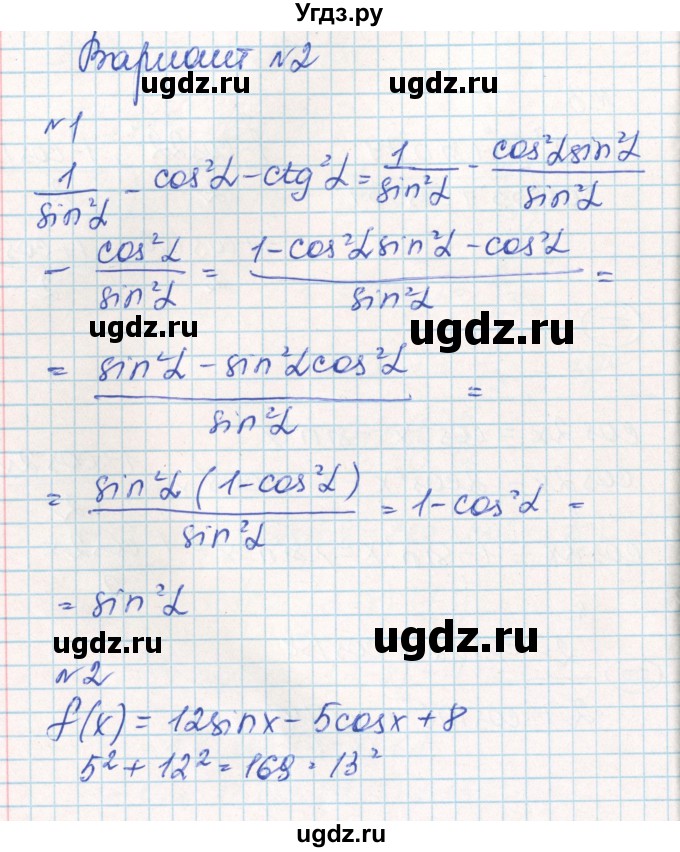 Угдз.ру
Вариант №2
ugdz.ru ugdz.ru
№1
1/sin²α - cos²α - ctg²α = 1/sin²α - cos²α sin²α/sin²α
- cos²α/sin²α = (1 - cos²α sin²α - cos²α)/sin²α =
ugdz.ru ugdz.ru
= (sin²α - sin²α cos²α)/sin²α =
= sin²α (1 - cos²α)/sin²α = 1 - cos²α =
= sin²α
ugdz.ru ugdz.ru
№2
f(x) = 12sinx - 5cosx + 8
5² + 12² = 169 = 13²
ugdz.ru ugdz.ru
ugdz.ru